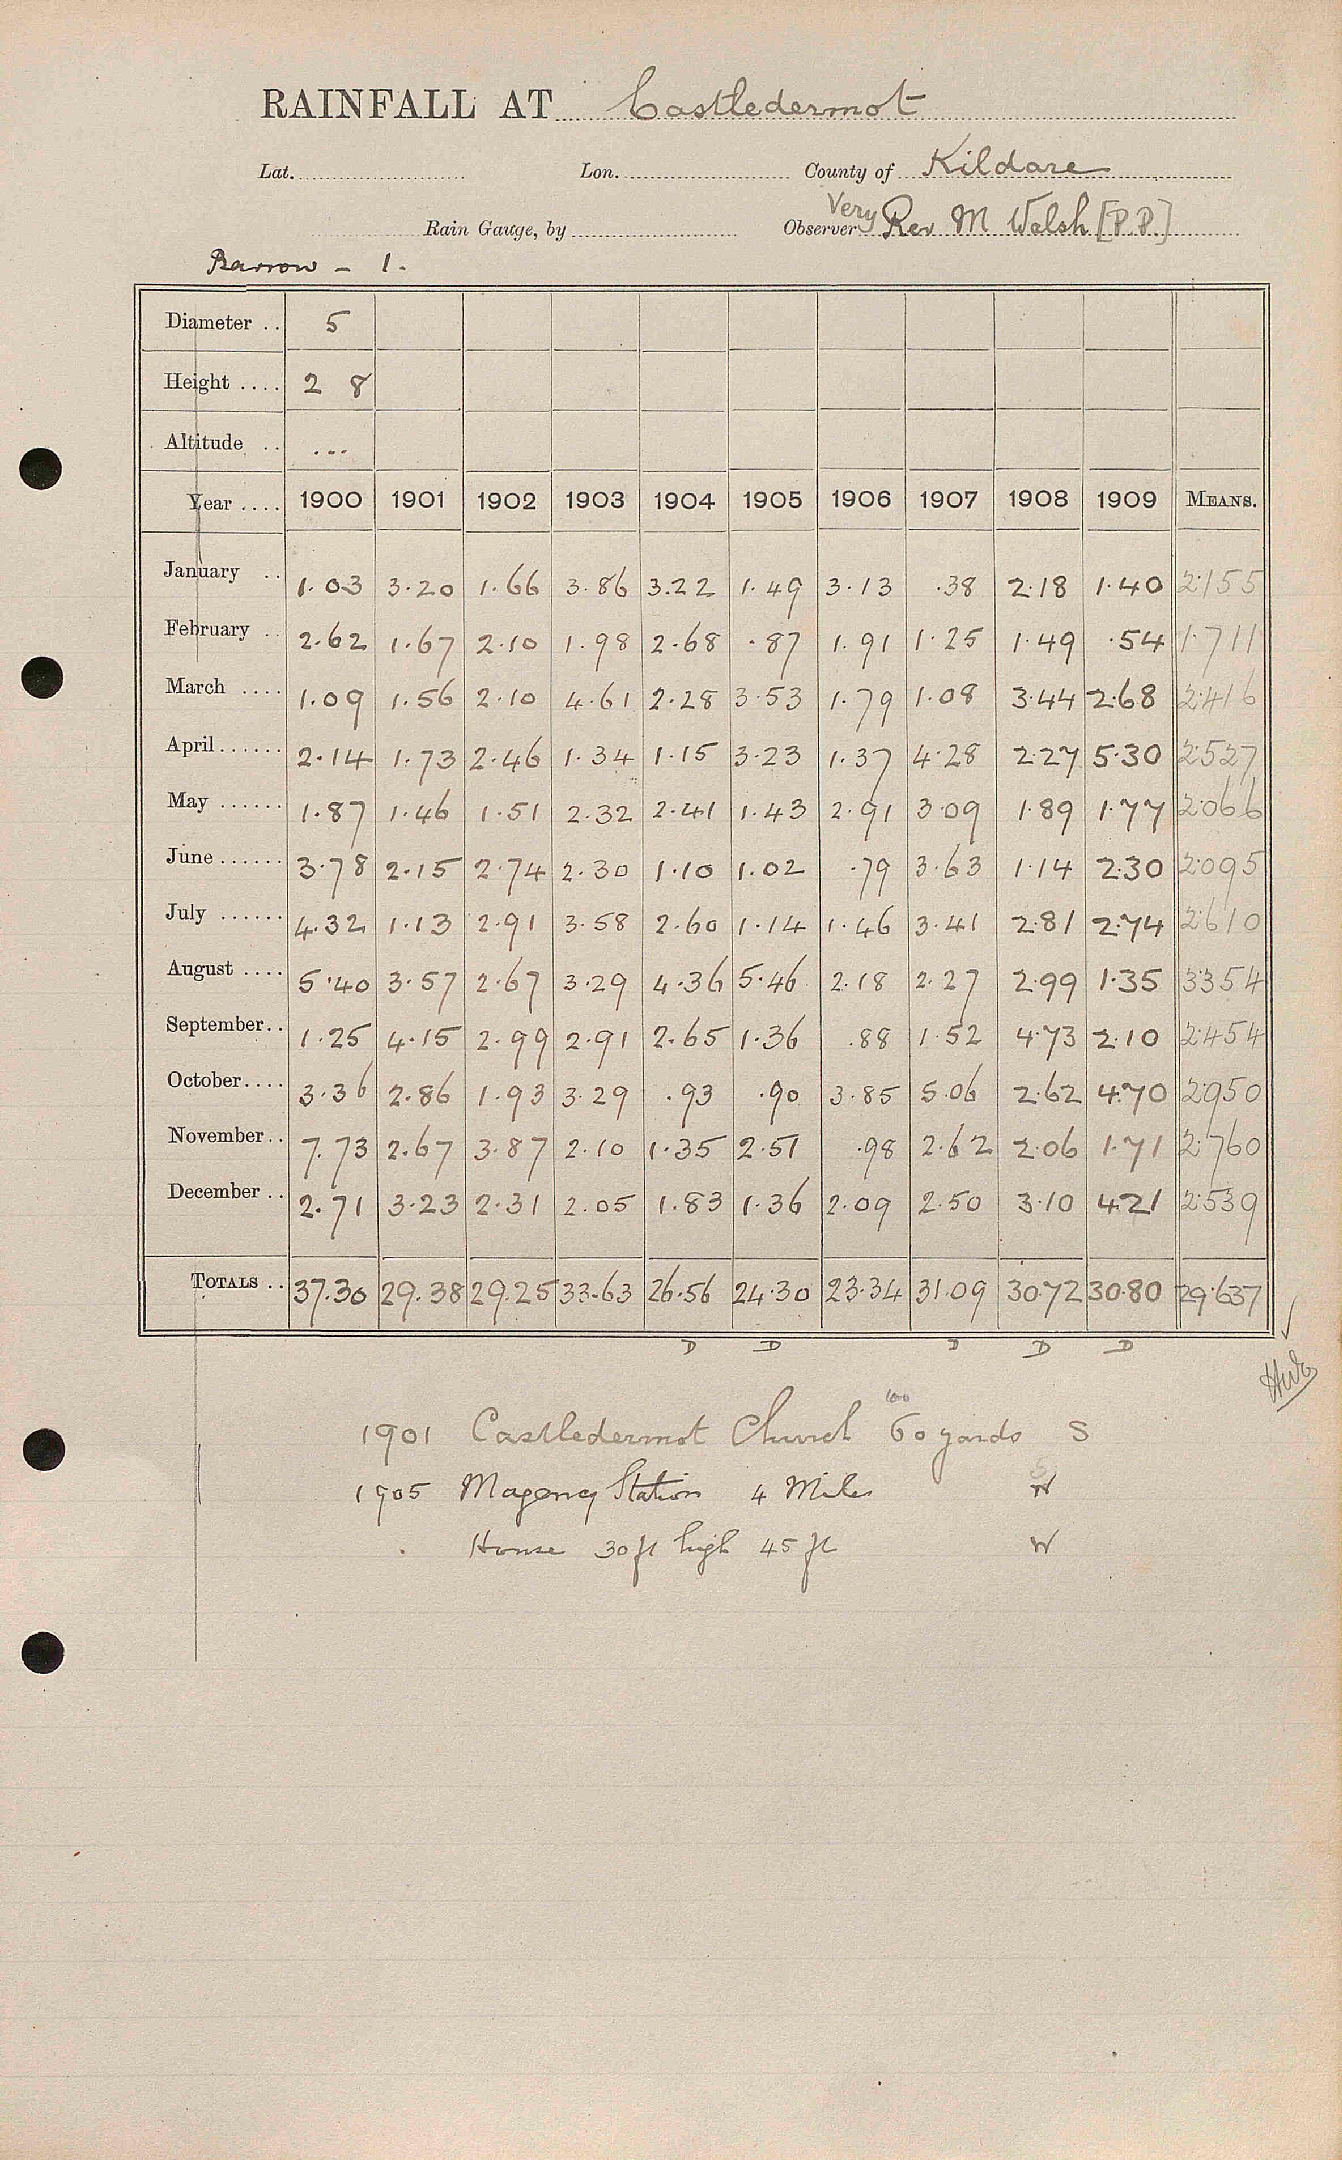 RAINFALL AT Castledermot
Lat. Lon. County of Kildare
Rain Gauge, by Observer Very Rev M Walsh [P.P.]
Barrow - 1.
Diameter .. 5
Height .... 2 8
Altitude .. ...
Year .... 1900 1901 1902 1903 1904 1905 1906 1907 1908 1909 MEANS.
January .. 1.03 3.20 1.66 3.86 3.22 1.49 3.13 .38 2.18 1.40 2.155
February .. 2.62 1.67 2.10 1.98 2.68 .87 1.91 1.25 1.49 .54 1.711
March .... 1.09 1.56 2.10 4.61 2.28 3.53 1.79 1.08 3.44 2.68 2.416
April...... 2.14 1.73 2.46 1.34 1.15 3.23 1.37 4.28 2.27 5.30 2.527
May ...... 1.87 1.46 1.51 2.32 2.41 1.43 2.91 3.09 1.89 1.77 2.066
June ...... 3.78 2.15 2.74 2.30 1.10 1.02 .79 3.63 1.14 2.30 2.095
July ...... 4.32 1.13 2.91 3.58 2.60 1.14 1.46 3.41 2.81 2.74 2.610
August .... 5.40 3.57 2.67 3.29 4.36 5.46 2.18 2.27 2.99 1.35 3.354
September.. 1.25 4.15 2.99 2.91 2.65 1.36 .88 1.52 4.73 2.10 2.454
October.... 3.36 2.86 1.93 3.29 .93 .90 3.85 5.06 2.62 4.70 2.950
November.. 7.73 2.67 3.87 2.10 1.35 2.51 .98 2.62 2.06 1.71 2.760
December .. 2.71 3.23 2.31 2.05 1.83 1.36 2.09 2.50 3.10 4.21 2.539
TOTALS .. 37.30 29.38 29.25 33.63 26.56 24.30 23.34 31.09 30.72 30.80 29.637
D D D D D
100
1901 Castledermot Church 60 yards S
1905 Mageney Station 4 Miles
House 30 ft high 45 ft W